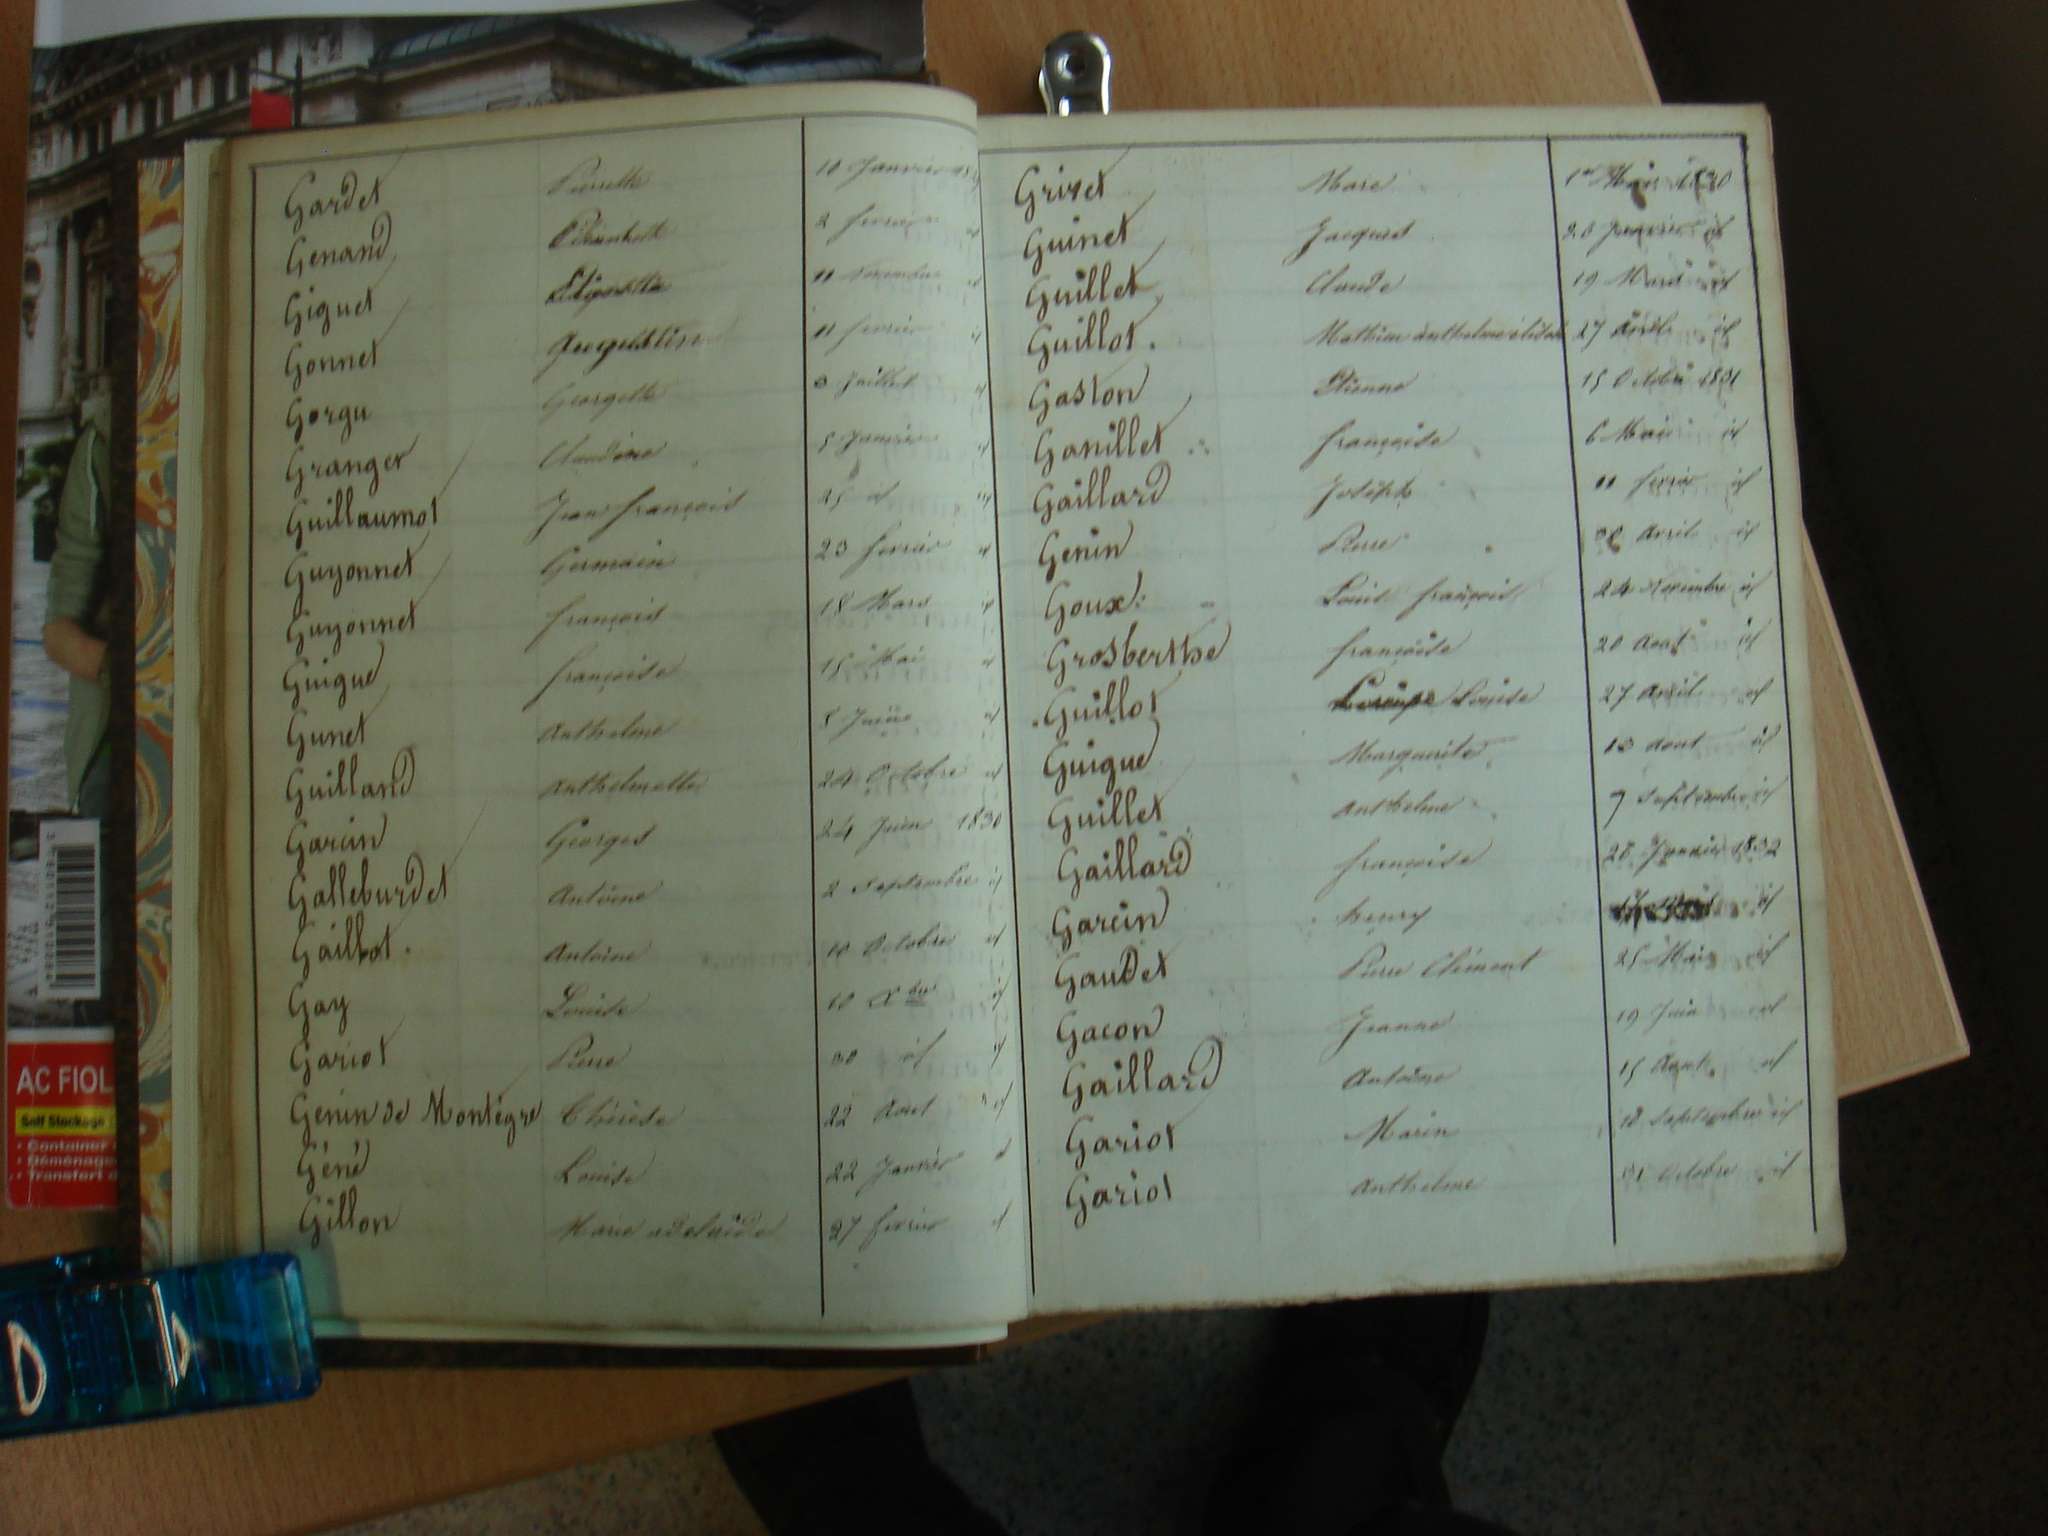 Gardet Pierrette 10 Janvier
Genand 2 fevrier
Giguet 11 Novembre id
Gonnet 11 fevrier id
Gorgu Georgette 3 Juillet id
Granger Claudine 5 Janvier id
Guillaumot Jean françois 25 id id
Guyonnet Germain 23 fevrier id
Guyonnet françois 18 Mars id
Guigue françoise 15 Mai id
Gunet Anthelme 8 id
Guilland Anthelmette 24 Octobre id
Garcin Georges 24 Juin 1830
Galleburdet Antoine 2 Septembre id
Gaillot. Antoine 10 Octobre id
Gay Louise 10 Xbre id
Gariot Pierre 30 id id
Genin de Montègre Thérèse 22 Aout id
Géné Louise 22 Janvier id
Gillon Marie adelaïde 27 fevrier id
Grivet Marie 1er 1830
Guinet Jacques 20 Janvier id
Guillet Claude 19 Mars id
Guillot. Mathieu anthelme 27 Avril id
Gaston Etienne 15 Octobre 1831
Ganillet françoise 6 Mai id
Gaillard Joseph 11 fevrier id
Genin Pierre 30 Avril id
Goux Louis françois 24 Novembre id
Grosberthe françoise 20 Aout id
Guillot Louise 27 Avril id
Guigue Marguerite 13 Aout id
Guillet Anthelme 7 Septembre id
Gaillard françoise 28 Janvier 1832
Garcin henry id
Gaudet Pierre Clément 25 Mars id
Gacon Jeanne 19 Juin id
Gaillard Antoine 15 Aout id
Gariot Marin 18 Septembre id
Gariot Anthelme 31 Octobre id
AC FIOL
Self Stockage
• Container
• Déménage
• Transfert d